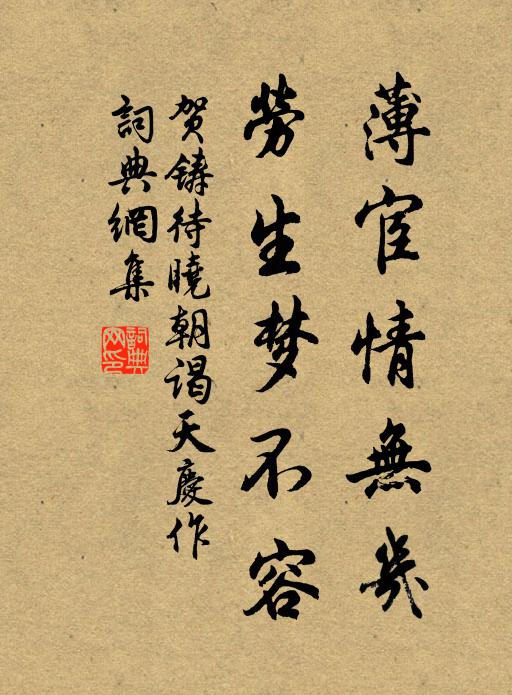 薄宦情無幾
勞生梦不容
贺鑄待曉朝谒天慶作
詞典網集
詞典网印